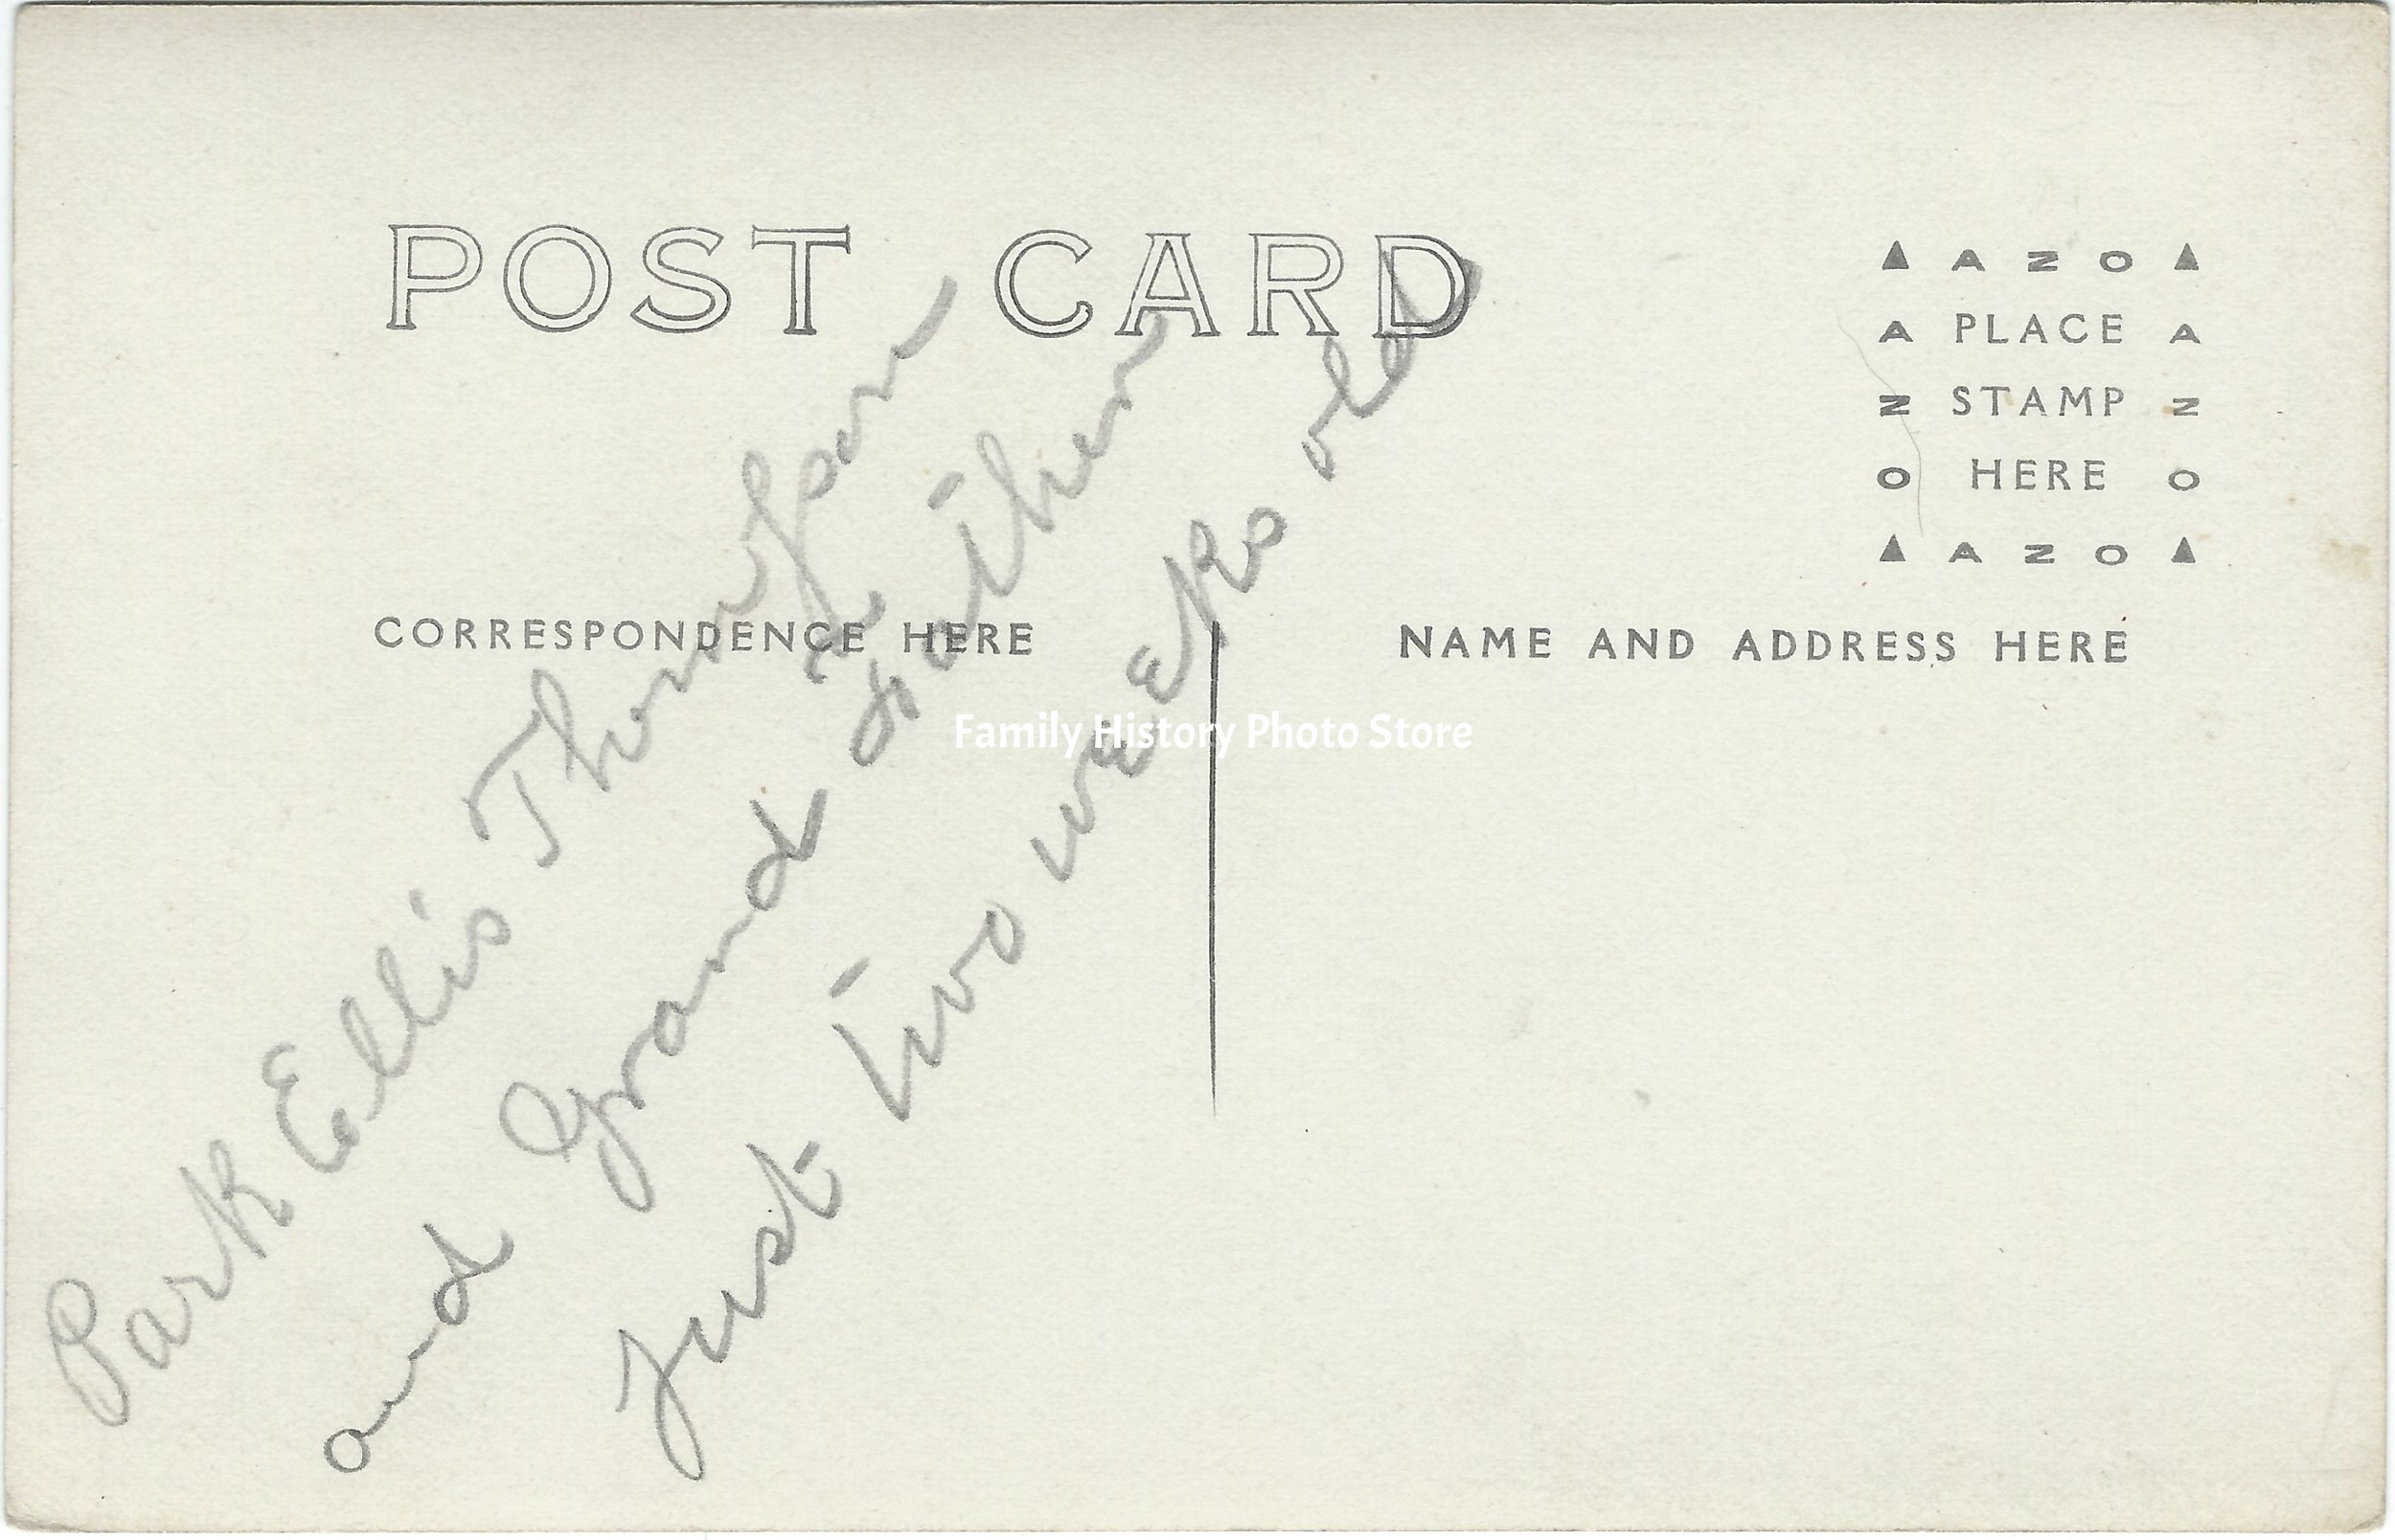 POST CARD
▲ A Z O ▲
A PLACE A
Z STAMP Z
O HERE O
▲ A Z O ▲
CORRESPONDENCE HERE
NAME AND ADDRESS HERE
Park Ellis Thompson
and Grand Father
Just two weeks old
Family History Photo Store